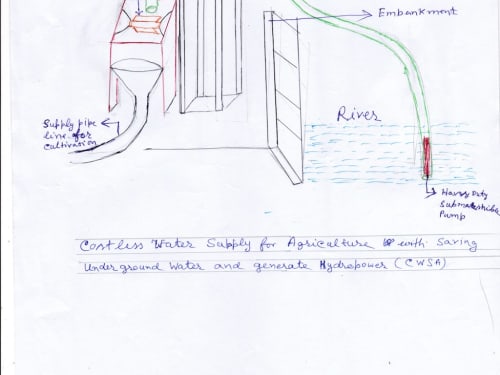 Embankment
River
Supply pipe
line for
cultivation
Heavy Duty
Submersible
Pump
Costless Water Supply for Agriculture with Saving
Underground Water and generate Hydropower (CWSA)